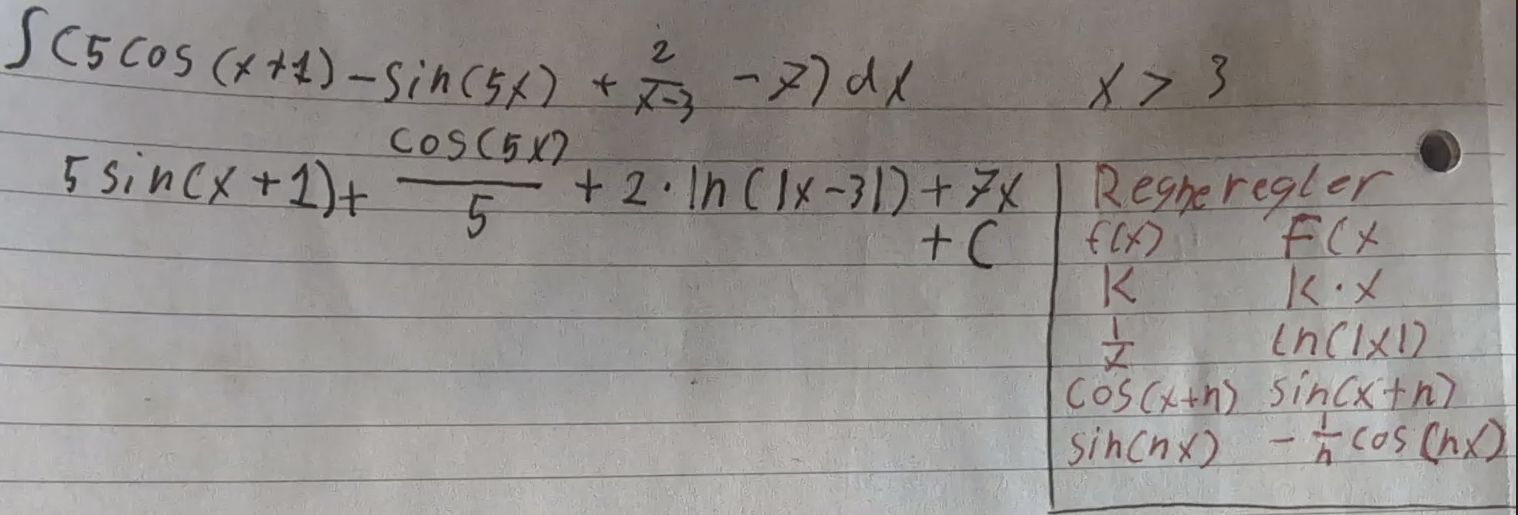 ∫(5cos(x+1)-sin(5x) + 2/(x-3) - 7)dx    x > 3
5 sin(x+1)+ cos(5x)/5 + 2·ln(|x-3|) + 7x
+ C
Regneregler
f(x)    F(x
K    K·x
1/x    ln(|x|)
cos(x+n)    sin(x+n)
sin(nx)    -1/n cos(nx)